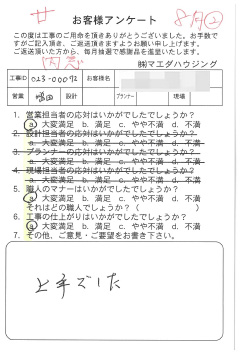 お客様アンケート
8月②
この度は工事のご用命を頂きありがとうございました。お手数で
すがご記入頂き、ご返送頂きますようお願い申し上げます。
ご返送頂いた方から、毎月抽選で感謝品を進呈いたします。
㈱マエダハウジング
工事ID 023-00092 お客様名
営業 設計 プランナー 現場
1. 営業担当者の応対はいかがでしたでしょうか?
a. 大変満足 b. 満足 c. やや不満 d. 不満
2. 設計担当者の応対はいかがでしたでしょうか?
a. 大変満足 b. 満足 c. やや不満 d. 不満
3. プランナーの応対はいかがでしたでしょうか?
a. 大変満足 b. 満足 c. やや不満 d. 不満
4. 現場担当者の応対はいかがでしたでしょうか?
a. 大変満足 b. 満足 c. やや不満 d. 不満
5. 職人のマナーはいかがでしたでしょうか?
a. 大変満足 b. 満足 c. やや不満 d. 不満
それはどの職人でしょうか? ( )
6. 工事の仕上がりはいかがでしたでしょうか?
a. 大変満足 b. 満足 c. やや不満 d. 不満
7. その他、ご意見・ご要望をお書き下さい。
上手でした